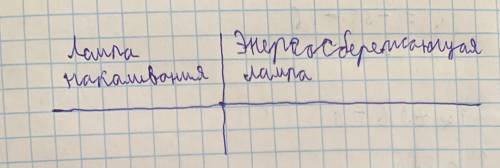 Лампа Энергосберегающая
накаливания лампа